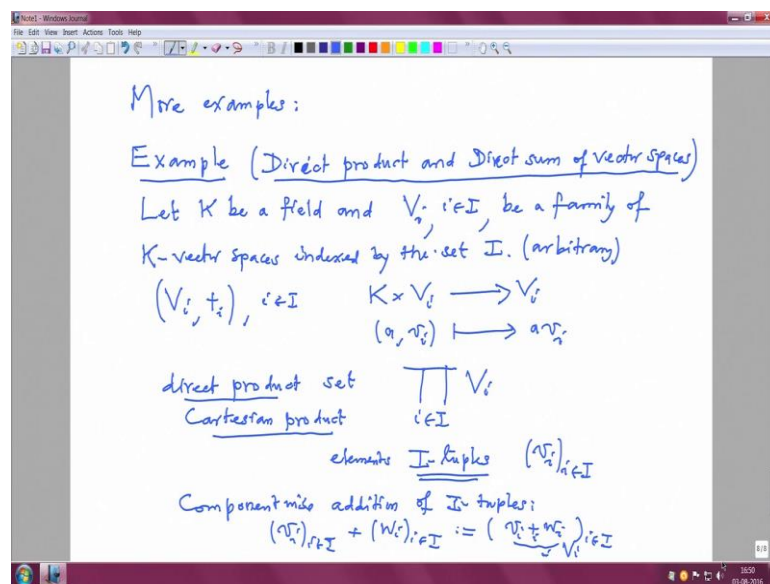 Note1 - Windows Journal
File Edit View Insert Actions Tools Help
More examples:
Example (Direct product and Direct sum of vector spaces)
Let K be a field and V_i, i∈I, be a family of
K-vector spaces indexed by the set I. (arbitrary)
(V_i, +_i), i∈I K × V_i ⟶ V_i
(a, v_i) ⟼ a v_i
direct product set ∏_{i∈I} V_i
Cartesian product
elements I-tuples (v_i)_{i∈I}
Componentwise addition of I-tuples:
(v_i)_{i∈I} + (w_i)_{i∈I} := (v_i +_i w_i)_{i∈I}
V_i
8/8
16:50
03-08-2016